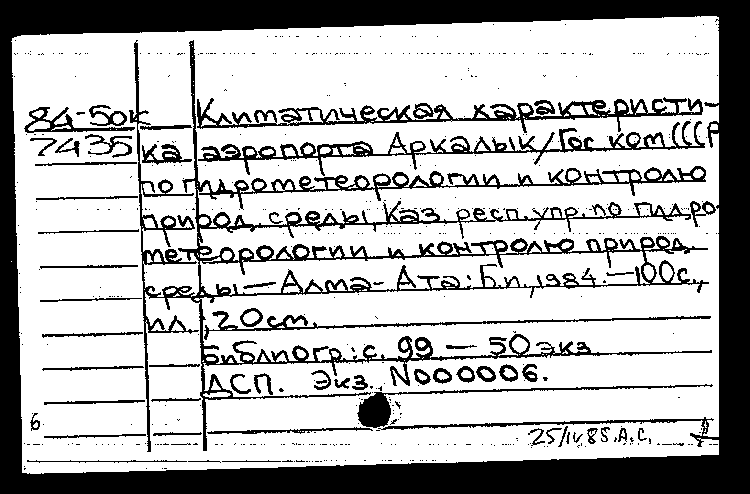 84-50к Климатическая характеристи-
7435 ка аэропорта Аркалык/Гос ком СССР
по гидрометеорологии и контролю
природ. среды, Каз. респ. упр. по гидро-
метеорологии и контролю природ.
среды — Алма-Ата: Б.и., 1984. — 100 с.,
ил.; 20 см.
Библиогр: с. 99 — 50 экз
ДСП. Экз. N000006.
6
25/IV 85. А.С.